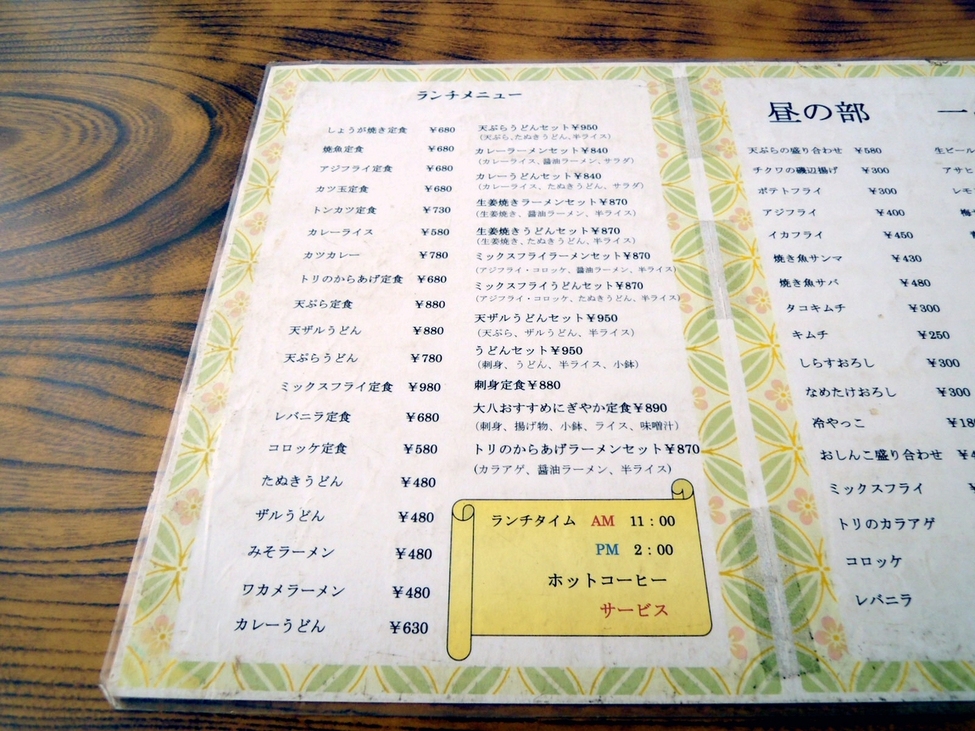 ランチメニュー
しょうが焼き定食 ¥680
焼魚定食 ¥680
アジフライ定食 ¥680
カツ玉定食 ¥680
トンカツ定食 ¥730
カレーライス ¥580
カツカレー ¥780
トリのからあげ定食 ¥680
天ぷら定食 ¥880
天ザルうどん ¥880
天ぷらうどん ¥780
ミックスフライ定食 ¥980
レバニラ定食 ¥680
コロッケ定食 ¥580
たぬきうどん ¥480
ザルうどん ¥480
みそラーメン ¥480
ワカメラーメン ¥480
カレーうどん ¥630
天ぷらうどんセット¥950
(天ぷら、たぬきうどん、半ライス)
カレーラーメンセット¥840
(カレーライス、醤油ラーメン、サラダ)
カレーうどんセット¥840
(カレーライス、たぬきうどん、サラダ)
生姜焼きラーメンセット¥870
(生姜焼き、醤油ラーメン、半ライス)
生姜焼きうどんセット¥870
(生姜焼き、たぬきうどん、半ライス)
ミックスフライラーメンセット¥870
(アジフライ・コロッケ、醤油ラーメン、半ライス)
ミックスフライうどんセット¥870
(アジフライ・コロッケ、たぬきうどん、半ライス)
天ザルうどんセット¥950
(天ぷら、ザルうどん、半ライス)
うどんセット¥950
(刺身、うどん、半ライス、小鉢)
刺身定食¥880
大八おすすめにぎやか定食¥890
(刺身、揚げ物、小鉢、ライス、味噌汁)
トリのからあげラーメンセット¥870
(カラアゲ、醤油ラーメン、半ライス)
ランチタイム AM 11：00
PM 2：00
ホットコーヒー
サービス
昼の部 一
天ぷらの盛り合わせ ¥580
チクワの磯辺揚げ ¥300
ポテトフライ ¥300
アジフライ ¥400
イカフライ ¥450
焼き魚サンマ ¥430
焼き魚サバ ¥480
タコキムチ ¥300
キムチ ¥250
しらすおろし ¥300
なめたけおろし ¥300
冷やっこ ¥18
おしんこ盛り合わせ ¥
ミックスフライ ¥
トリのカラアゲ
コロッケ
レバニラ
生ビール
アサヒ
レモ